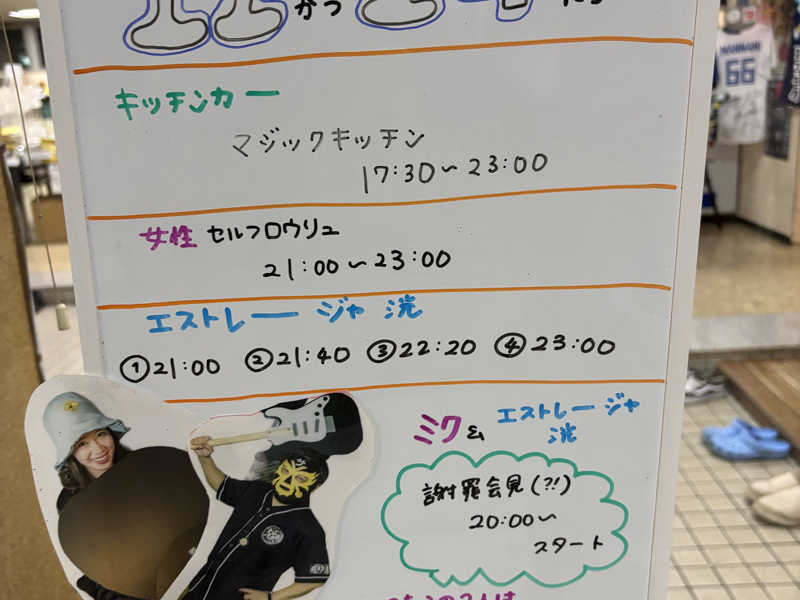 キッチンカー
マジックキッチン
17:30〜23:00
女性 セルフロウリュ
21:00〜23:00
エストレージャ 洸
①21:00 ②21:40 ③22:20 ④23:00
ミク& エストレージャ
洸
謝罪会見(?!)
20:00〜
スタート
66